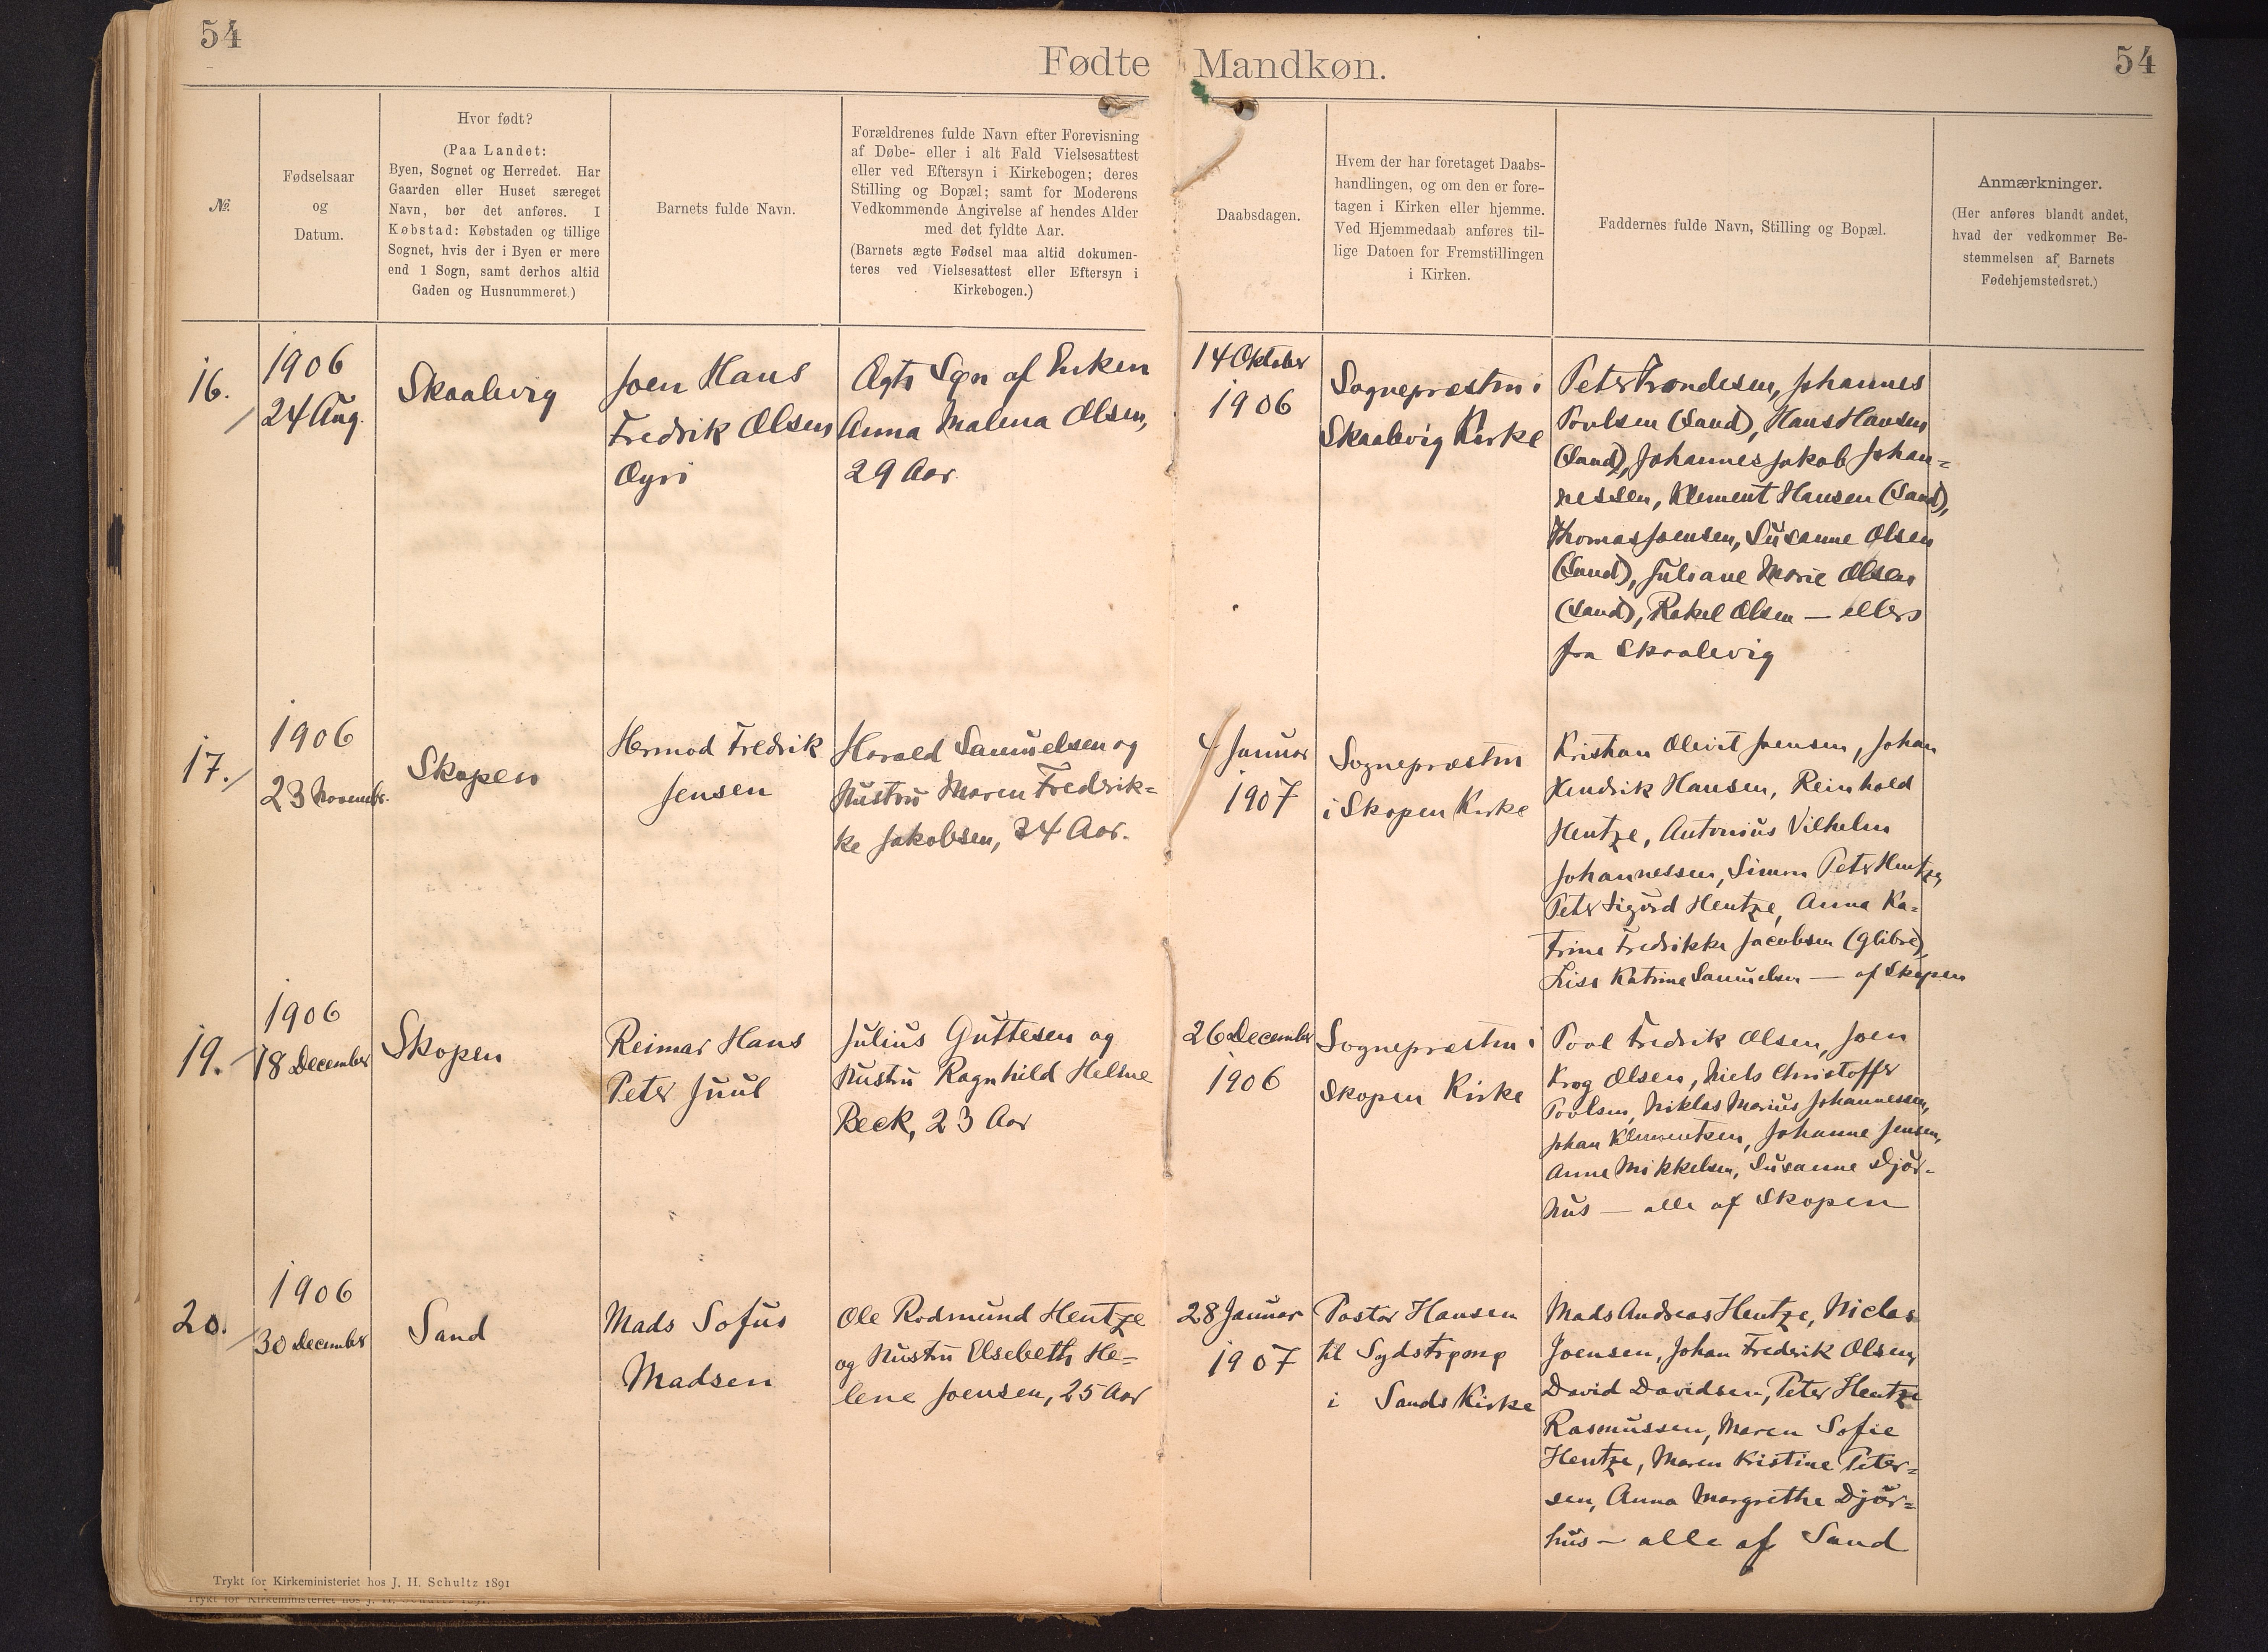 54
Fødte Mandkøn.
54
№.
Fødselsaar
og
Datum.
Hvor født?
(Paa Landet:
Byen, Sognet og Herredet. Har
Gaarden eller Huset særeget
Navn, bør det anføres. I
Købstad: Købstaden og tillige
Sognet, hvis der i Byen er mere
end 1 Sogn, samt derhos altid
Gaden og Husnummeret.)
Barnets fulde Navn.
Forældrenes fulde Navn efter Forevisning
af Døbe- eller i alt Fald Vielsesattest
eller ved Eftersyn i Kirkebogen; deres
Stilling og Bopæl; samt for Moderens
Vedkommende Angivelse af hendes Alder
med det fyldte Aar.
(Barnets ægte Fødsel maa altid dokumen-
teres ved Vielsesattest eller Eftersyn i
Kirkebogen.)
Daabsdagen.
Hvem der har foretaget Daabs-
handlingen, og om den er fore-
tagen i Kirken eller hjemme.
Ved Hjemmedaab anføres til-
lige Datoen for Fremstillingen
i Kirken.
Faddernes fulde Navn, Stilling og Bopæl.
Anmærkninger.
(Her anføres blandt andet,
hvad der vedkommer Be-
stemmelsen af Barnets
Fødehjemstedsret.)
16.
1906
24 Aug.
Skaalevig
Joen Hans
Fredrik Olsen
Øyri
Ægte Søn af Enken
Anna Malena Olsen,
29 Aar.
14 Oktober
1906
Sognepræsten i
Skaalevig Kirke
Peter Trondesen, Johannes
Poulsen (Sand), Hans Hansen
(Sand), Johannes Jakob Johan=
nessen, Klement Hansen (Sand),
Thomas Joensen, Susanne Olsen
(Sand), Juliane Marie Olsen
(Sand), Rakel Olsen — ellers
fra Skaalevig
17.
1906
23 Novembr.
Skopen
Hermod Fredrik
Jensen
Harald Samuelsen og
Hustru Maren Fredrik=
ke Jakobsen, 34 Aar.
4 Januar
1907
Sognepræsten
i Skopen Kirke
Kristian Olevit Joensen, Johan
Hendrik Hansen, Reinhold
Hentze, Antonius Vilhelm
Johannessen, Simon Peter Hentze,
Peter Sigurd Hentze, Anna Ka=
trine Fredrikke Jacobsen (Glibre),
Lisa Katrine Samuelsen — af Skopen
19.
1906
18 December
Skopen
Reimar Hans
Peter Juul
Julius Guttesen og
Hustru Ragnhild Helene
Beck, 23 Aar
26 December
1906
Sognepræsten i
Skopen Kirke
Poul Fredrik Olsen, Joen
Krog Olsen, Niels Christoffer
Poulsen, Niklas Marius Johannessen,
Johan Klementsen, Johanne Jensen,
Anne Mikkelsen, Susanne Djur=
hus — alle af Skopen
20.
1906
30 December
Sand
Mads Sofus
Madsen
Ole Rodmund Hentze
og Hustru Elsebeth He=
lene Joensen, 25 Aar
28 Januar
1907
Pastor Hansen
til Sydstrømø
i Sands Kirke
Mads Andreas Hentze, Niclas
Joensen, Johan Fredrik Olsen,
David Davidsen, Peter Hentze
Rasmussen, Maren Sofie
Hentze, Maren Kristine Peter=
sen, Anna Margrethe Djur=
hus — alle af Sand
Trykt for Kirkeministeriet hos J. H. Schultz 1891
Trykt for Kirkeministeriet hos J. H. Schultz 1891.